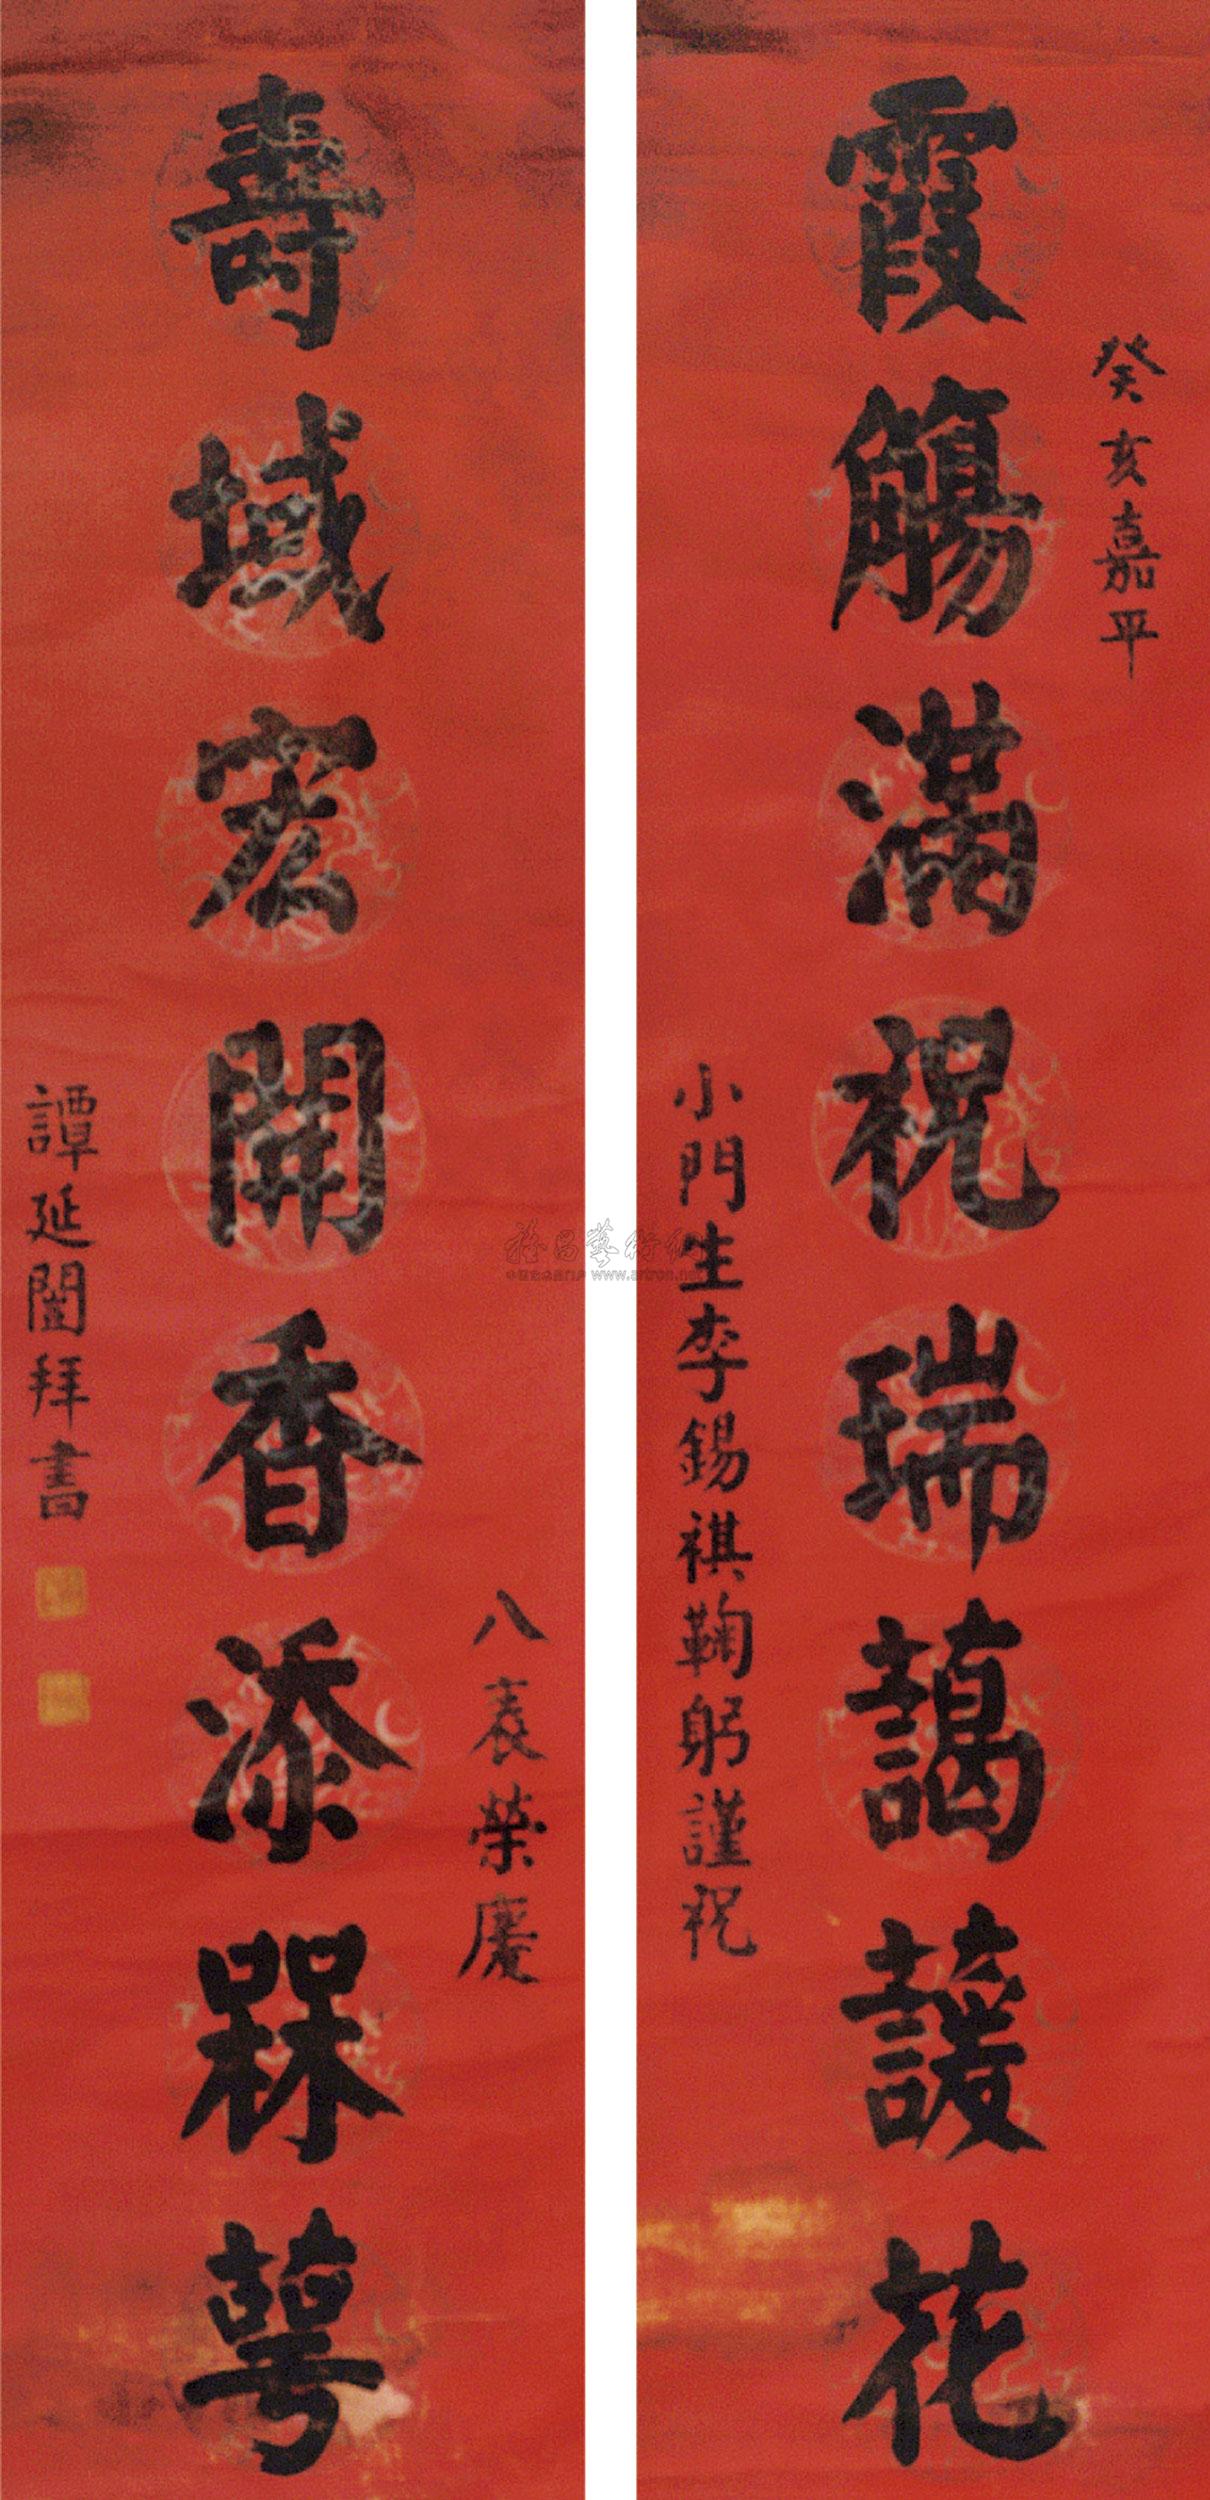 癸亥嘉平
霞觴滿祝瑞藹蘐花
小門生李錫祺鞠躬謹祝
八袠榮慶
壽域宏開香添槑萼
譚延闓拜書
雅昌藝術網
www.artron.net